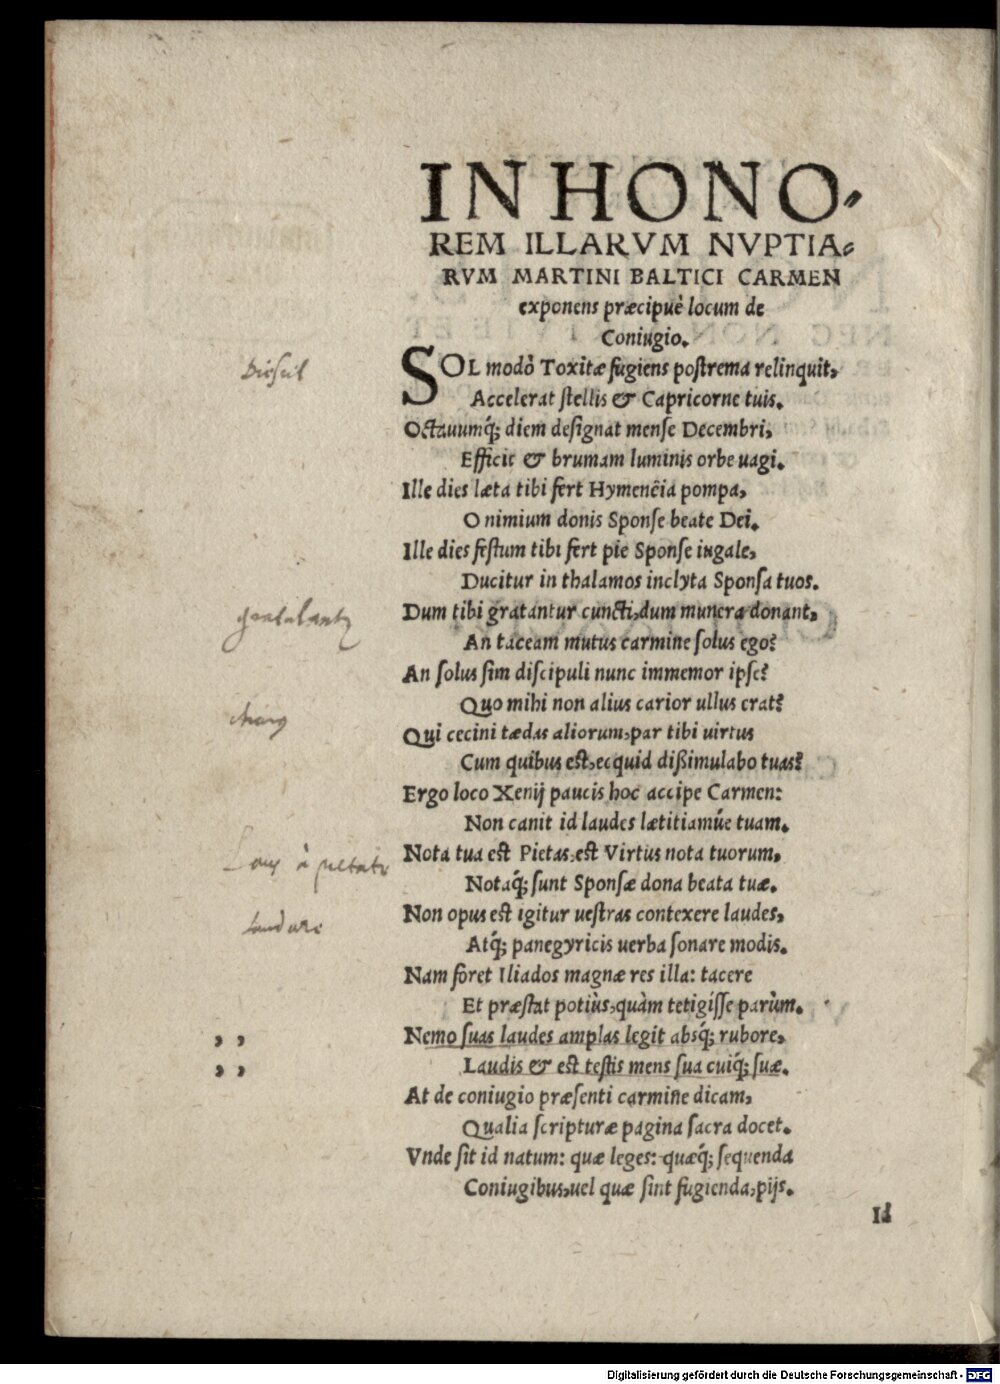 IN HONO-
REM ILLARVM NVPTIA-
RVM MARTINI BALTICI CARMEN
exponens præcipuè locum de
Coniugio.
SOL modò Toxitæ fugiens postrema relinquit,
Accelerat stellis & Capricorne tuis.
Octauumq́; diem designat mense Decembri,
Efficit & brumam luminis orbe uagi.
Ille dies læta tibi fert Hymenêia pompa,
O nimium donis Sponse beate Dei.
Ille dies festum tibi fert pie Sponse iugale,
Ducitur in thalamos inclyta Sponsa tuos.
Dum tibi gratantur cuncti, dum munera donant,
An taceam mutus carmine solus ego?
An solus sim discipuli nunc immemor ipse?
Quo mihi non alius carior ullus erat?
Qui cecini tædas aliorum, par tibi uirtus
Cum quibus est, ecquid dißimulabo tuas?
Ergo loco Xenij paucis hoc accipe Carmen:
Non canit id laudes lætitiamúe tuam.
Nota tua est Pietas, est Virtus nota tuorum,
Notaq́; sunt Sponsæ dona beata tuæ.
Non opus est igitur uestras contexere laudes,
Atq́; panegyricis uerba sonare modis.
Nam foret Iliados magnæ res illa: tacere
Et præstat potiùs, quàm tetigisse parùm.
Nemo suas laudes amplas legit absq́; rubore,
Laudis & est testis mens sua cuiq́; suæ.
At de coniugio præsenti carmine dicam,
Qualia scripturæ pagina sacra docet.
Vnde sit id natum: quæ leges: quæq́; sequenda
Coniugibus, uel quæ sint fugienda, pijs.
Laus à pietate
laudare
Digitalisierung gefördert durch die Deutsche Forschungsgemeinschaft - DFG